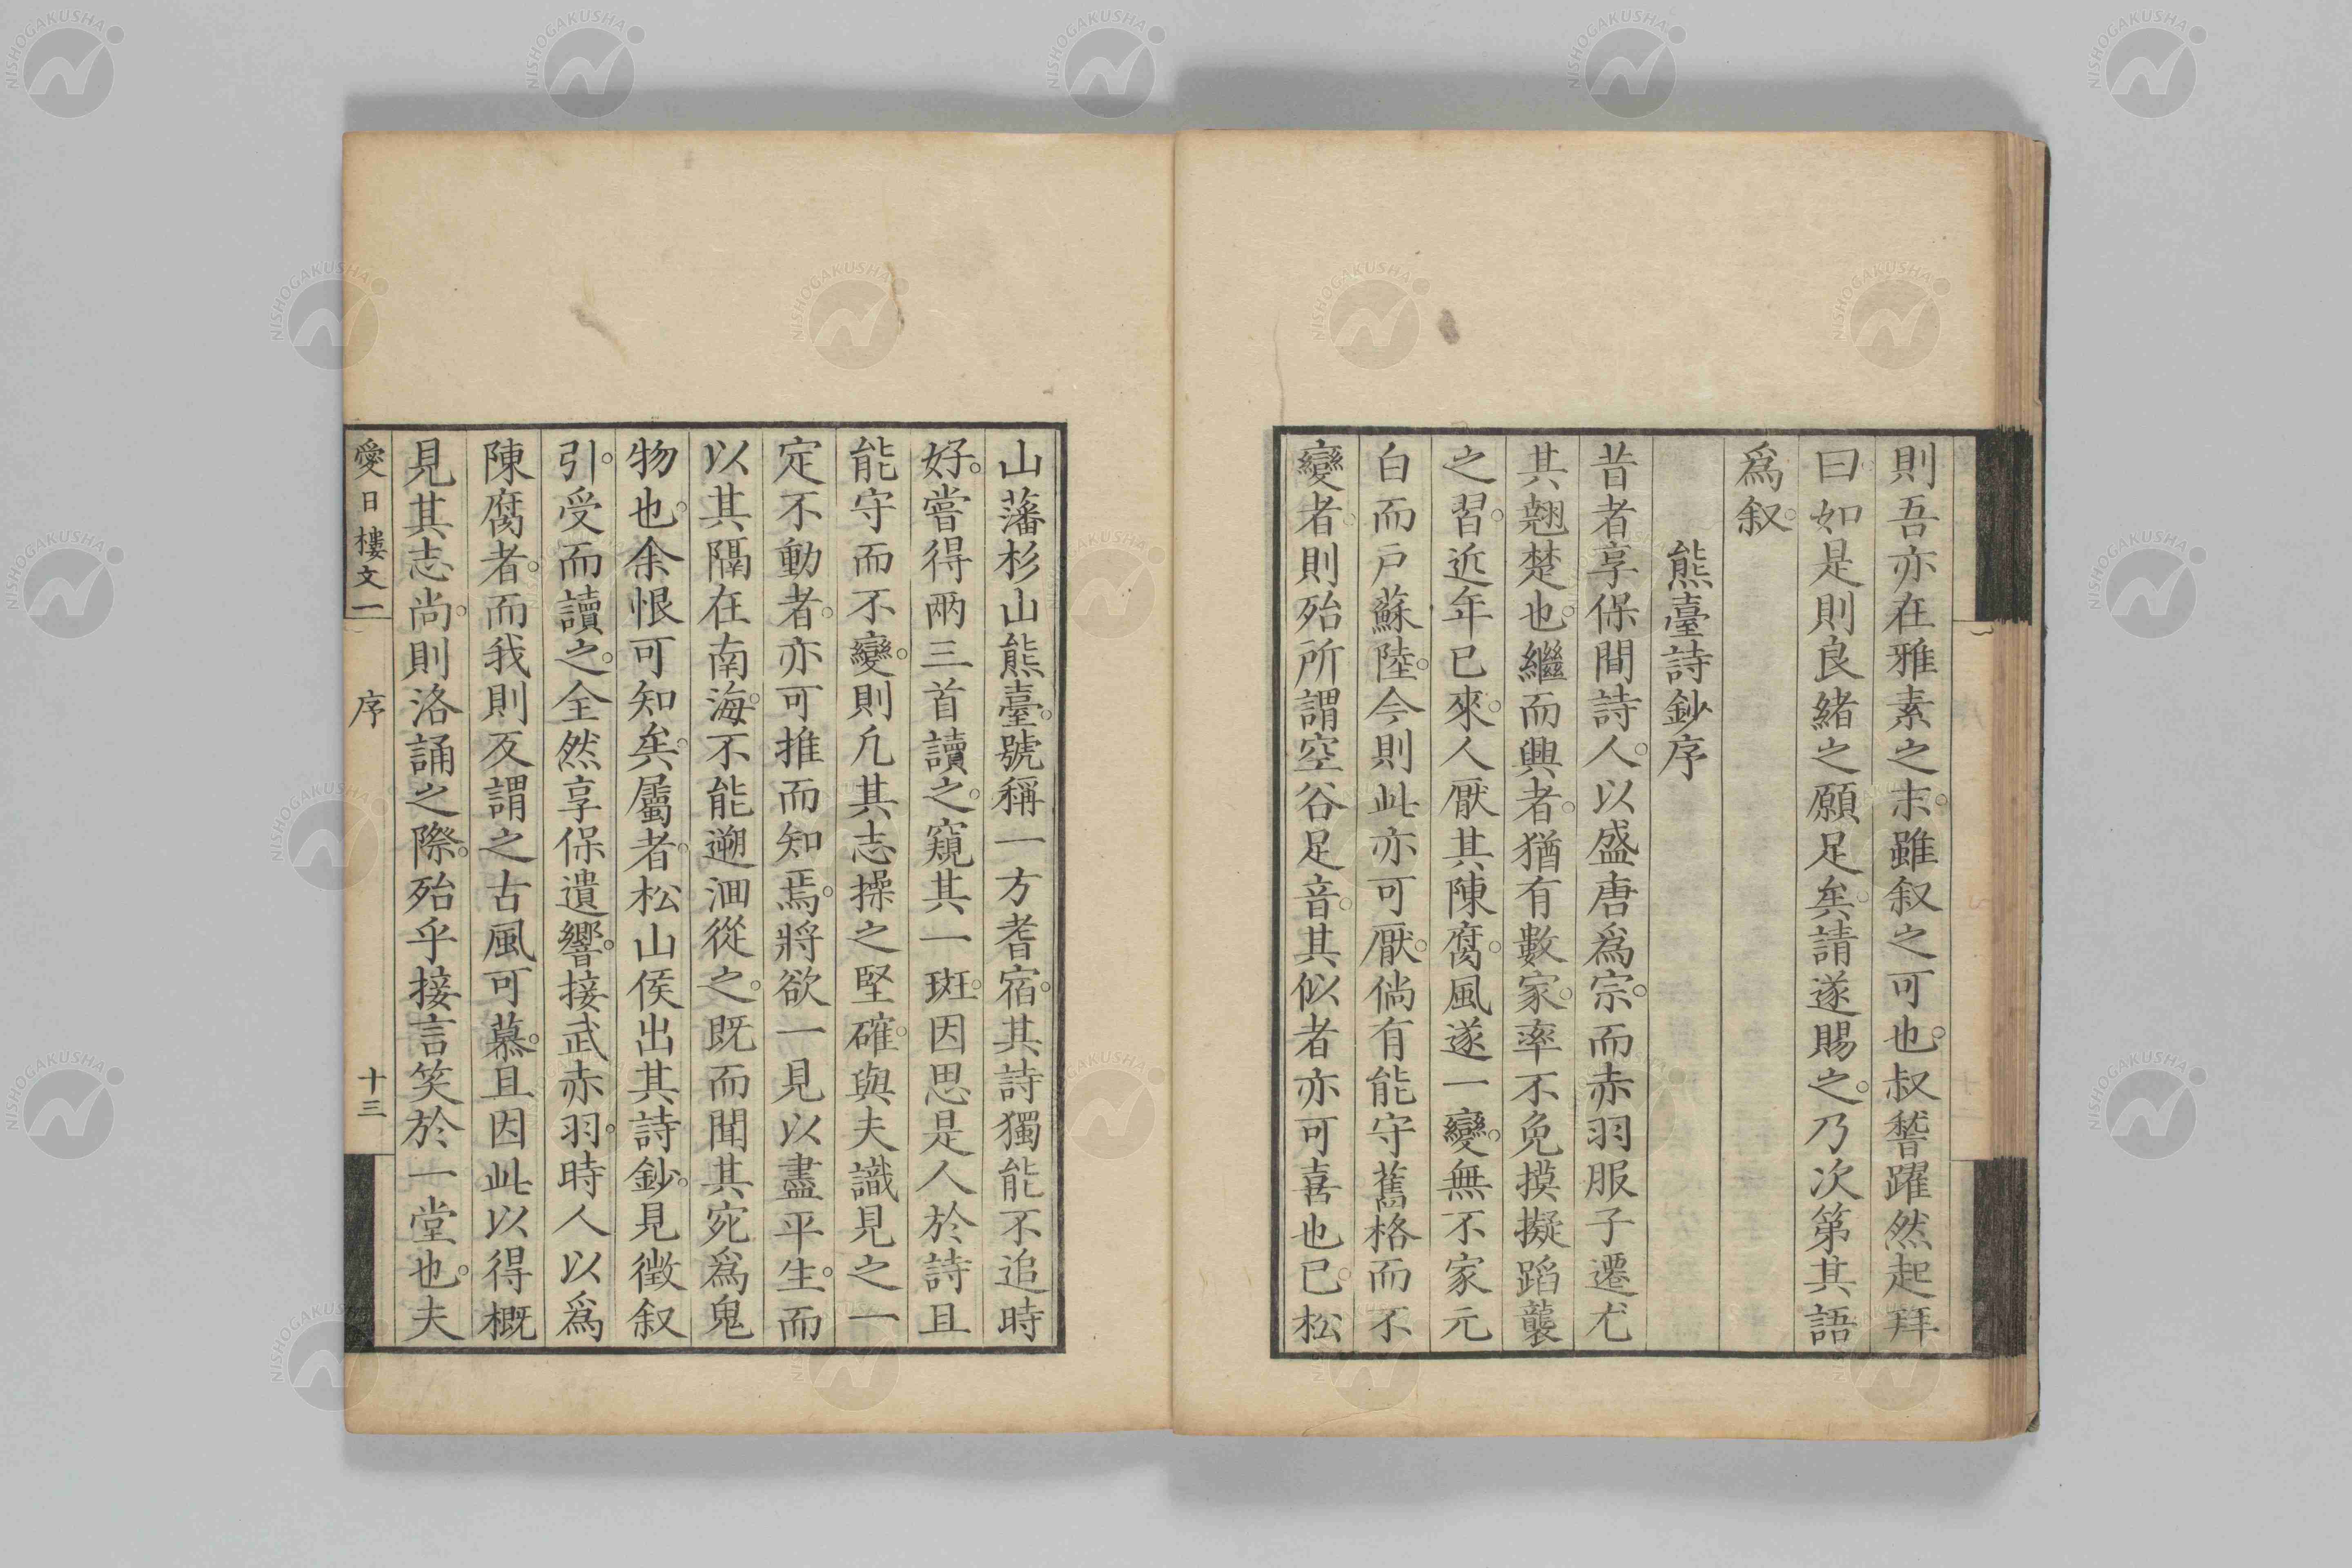 則吾亦在雅素之末。雖叙之可也。叔謷躍然起拜
曰如是則良緒之願足矣。請遂賜之。乃次第其語
爲叙。
熊臺詩鈔序
昔者享保間詩人。以盛唐爲宗。而赤羽服子遷尤
其翹楚也。繼而興者。猶有數家。率不免摸擬蹈襲
之習。近年已來。人厭其陳腐。風遂一變。無不家元
白而戸蘇陸。今則此亦可厭。倘有能守舊格而不
變者。則殆所謂空谷足音。其似者亦可喜也已。松
山藩杉山熊臺。號稱一方耆宿。其詩獨能不追時
好。嘗得兩三首讀之。窺其一斑。因思是人於詩且
能守而不變。則凢其志操之堅確。與夫識見之一
定不動者。亦可推而知焉。將欲一見以盡平生。而
以其隔在南海。不能遡洄從之。既而聞其宛爲鬼
物也。余恨可知矣。屬者。松山侯出其詩鈔。見徴叙
引。受而讀之。全然享保遺響。接武赤羽。時人以爲
陳腐者。而我則反謂之古風可慕。且因此以得概
見其志尚。則洛誦之際。殆乎接言笑於一堂也。夫
愛日樓文二 序 十三
NISHOGAKUSHA